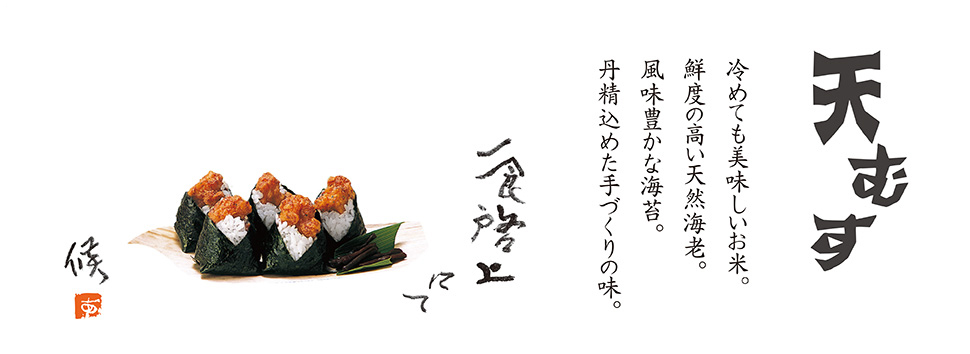 天むす
冷めても美味しいお米。
鮮度の高い天然海老。
風味豊かな海苔。
丹精込めた手づくりの味。
一食啓上
にて
候